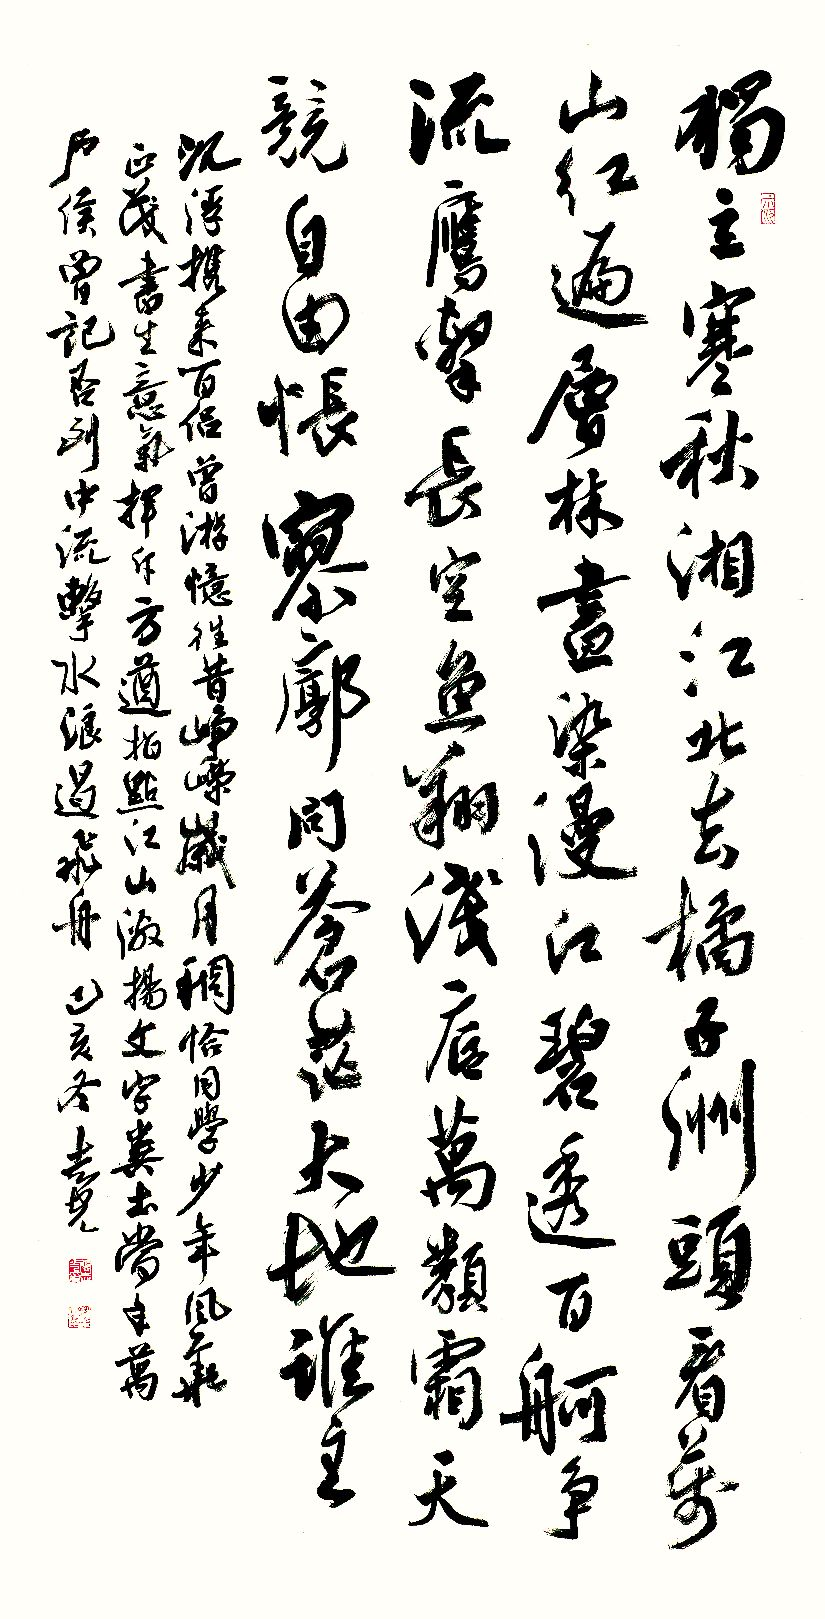 獨立寒秋湘江北去橘子洲頭看萬
山红遍層林盡染漫江碧透百舸争
流鷹擊長空魚翔淺底萬類霜天
競自由悵寥廓問蒼茫大地誰主
沉浮携来百侣曾游憶往昔崢嶸歲月稠恰同學少年風華
正茂書生意氣揮斥方遒指點江山激揚文字糞土當年萬
户侯曾記否到中流擊水浪遏飛舟 己亥冬